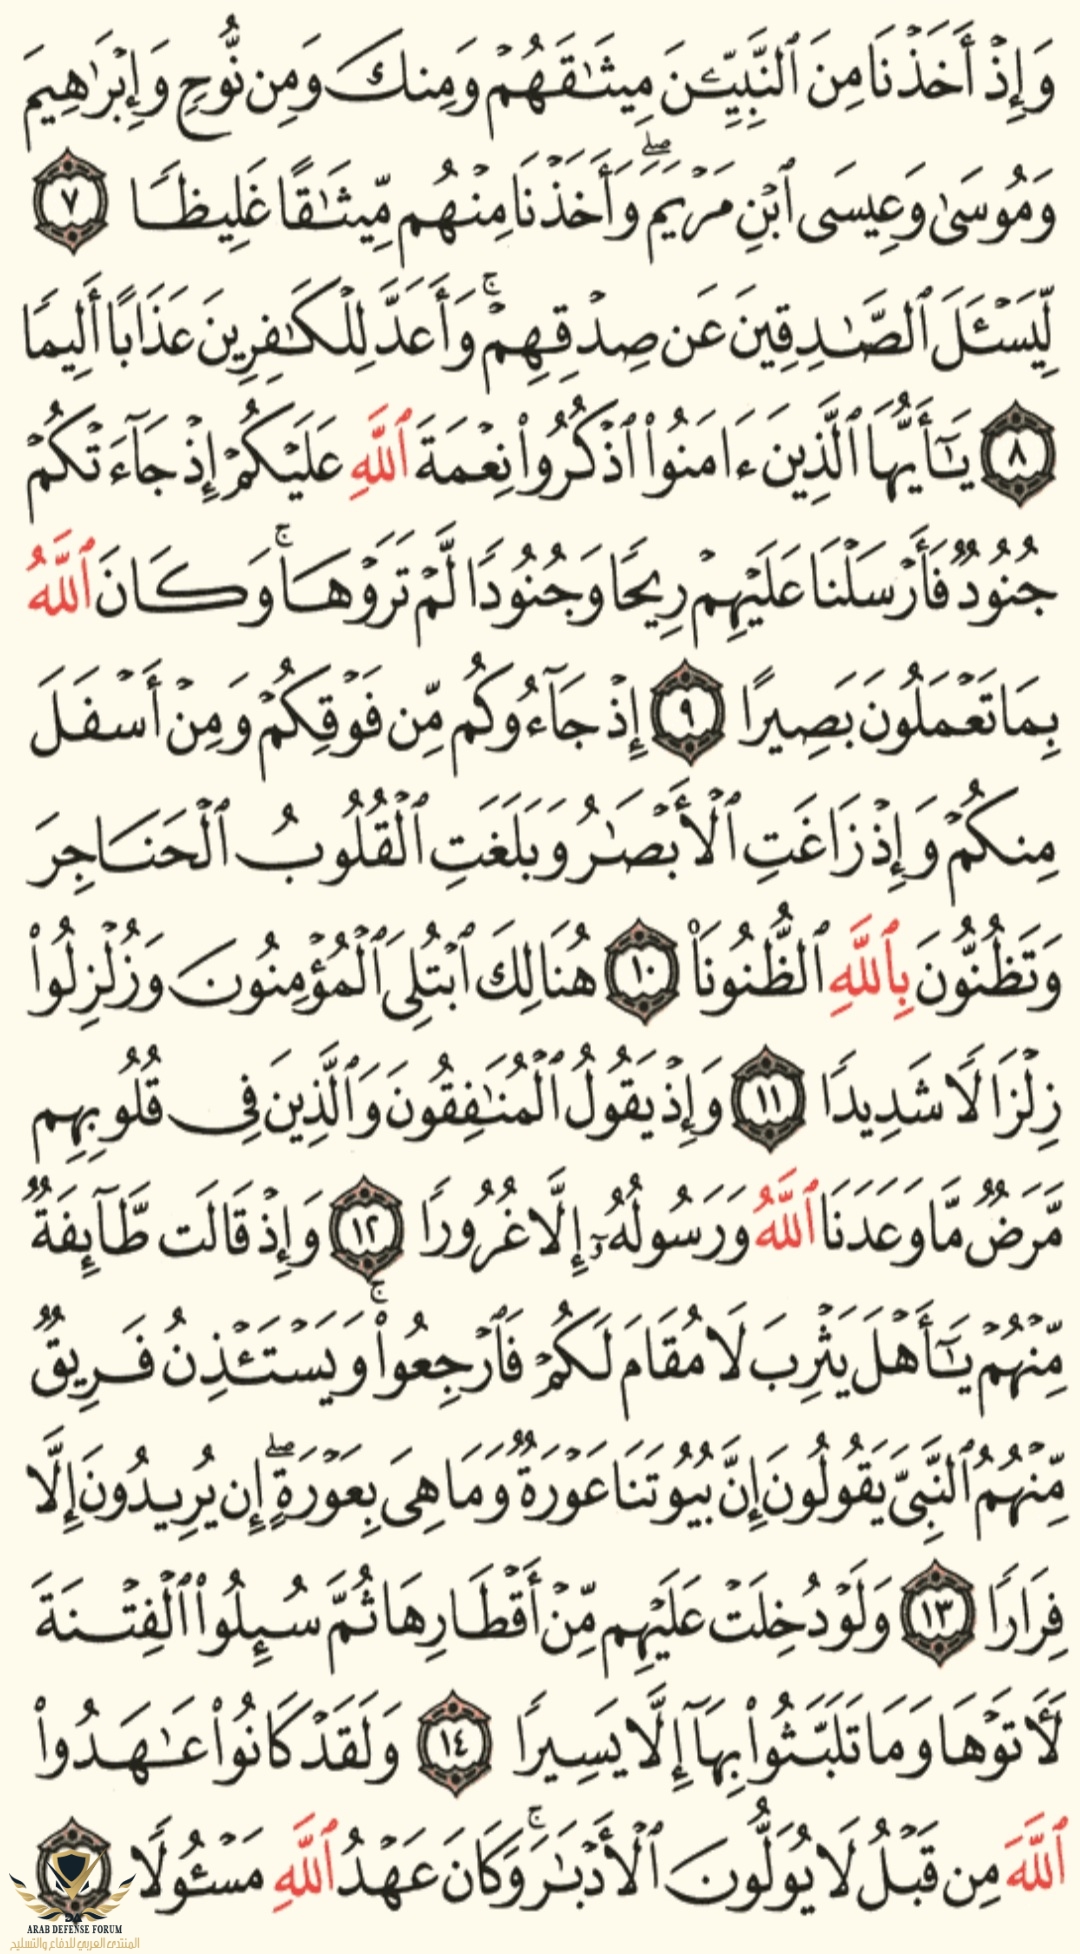 وَإِذْ أَخَذْنَا مِنَ ٱلنَّبِيِّـۧنَ مِيثَـٰقَهُمْ وَمِنكَ وَمِن نُّوحٍ وَإِبْرَٰهِيمَ
وَمُوسَىٰ وَعِيسَى ٱبْنِ مَرْيَمَ ۖ وَأَخَذْنَا مِنْهُم مِّيثَـٰقًا غَلِيظًا ٧
لِّيَسْـَٔلَ ٱلصَّـٰدِقِينَ عَن صِدْقِهِمْ ۚ وَأَعَدَّ لِلْكَـٰفِرِينَ عَذَابًا أَلِيمًا
٨ يَـٰٓأَيُّهَا ٱلَّذِينَ ءَامَنُوا۟ ٱذْكُرُوا۟ نِعْمَةَ ٱللَّهِ عَلَيْكُمْ إِذْ جَآءَتْكُمْ
جُنُودٌ فَأَرْسَلْنَا عَلَيْهِمْ رِيحًا وَجُنُودًا لَّمْ تَرَوْهَا ۚ وَكَانَ ٱللَّهُ
بِمَا تَعْمَلُونَ بَصِيرًا ٩ إِذْ جَآءُوكُم مِّن فَوْقِكُمْ وَمِنْ أَسْفَلَ
مِنكُمْ وَإِذْ زَاغَتِ ٱلْأَبْصَـٰرُ وَبَلَغَتِ ٱلْقُلُوبُ ٱلْحَنَاجِرَ
وَتَظُنُّونَ بِٱللَّهِ ٱلظُّنُونَا۠ ١٠ هُنَالِكَ ٱبْتُلِىَ ٱلْمُؤْمِنُونَ وَزُلْزِلُوا۟
زِلْزَالًا شَدِيدًا ١١ وَإِذْ يَقُولُ ٱلْمُنَـٰفِقُونَ وَٱلَّذِينَ فِى قُلُوبِهِم
مَّرَضٌ مَّا وَعَدَنَا ٱللَّهُ وَرَسُولُهُۥٓ إِلَّا غُرُورًا ١٢ وَإِذْ قَالَت طَّآئِفَةٌ
مِّنْهُمْ يَـٰٓأَهْلَ يَثْرِبَ لَا مُقَامَ لَكُمْ فَٱرْجِعُوا۟ ۚ وَيَسْتَـْٔذِنُ فَرِيقٌ
مِّنْهُمُ ٱلنَّبِىَّ يَقُولُونَ إِنَّ بُيُوتَنَا عَوْرَةٌ وَمَا هِىَ بِعَوْرَةٍ ۖ إِن يُرِيدُونَ إِلَّا
فِرَارًا ١٣ وَلَوْ دُخِلَتْ عَلَيْهِم مِّنْ أَقْطَارِهَا ثُمَّ سُئِلُوا۟ ٱلْفِتْنَةَ
لَـَٔاتَوْهَا وَمَا تَلَبَّثُوا۟ بِهَآ إِلَّا يَسِيرًا ١٤ وَلَقَدْ كَانُوا۟ عَـٰهَدُوا۟
ٱللَّهَ مِن قَبْلُ لَا يُوَلُّونَ ٱلْأَدْبَـٰرَ ۚ وَكَانَ عَهْدُ ٱللَّهِ مَسْـُٔولًا
ARAB DEFENSE FORUM
المنتدى العربي للدفاع والتسليح